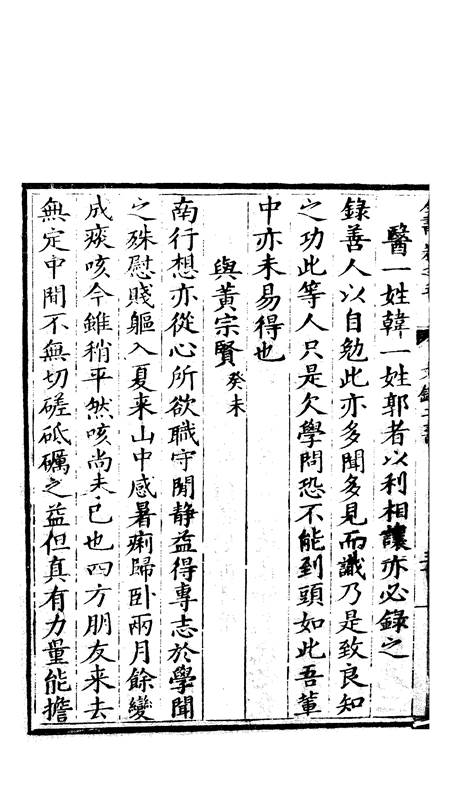 醫一姓韓一姓郭者以利相讓亦必錄之
錄善人以自勉此亦多聞多見而識乃是致良知
之功此等人只是欠學問恐不能到頭如此吾輩
中亦未易得也
與黃宗賢 癸未
南行想亦從心所欲職守閒靜益得專志於學聞
之殊慰賤軀入夏来山中感暑痢歸卧兩月餘變
成痰咳今雖稍平然咳尚未已也四方朋友来去
無定中間不無切磋砥礪之益但真有力量能擔